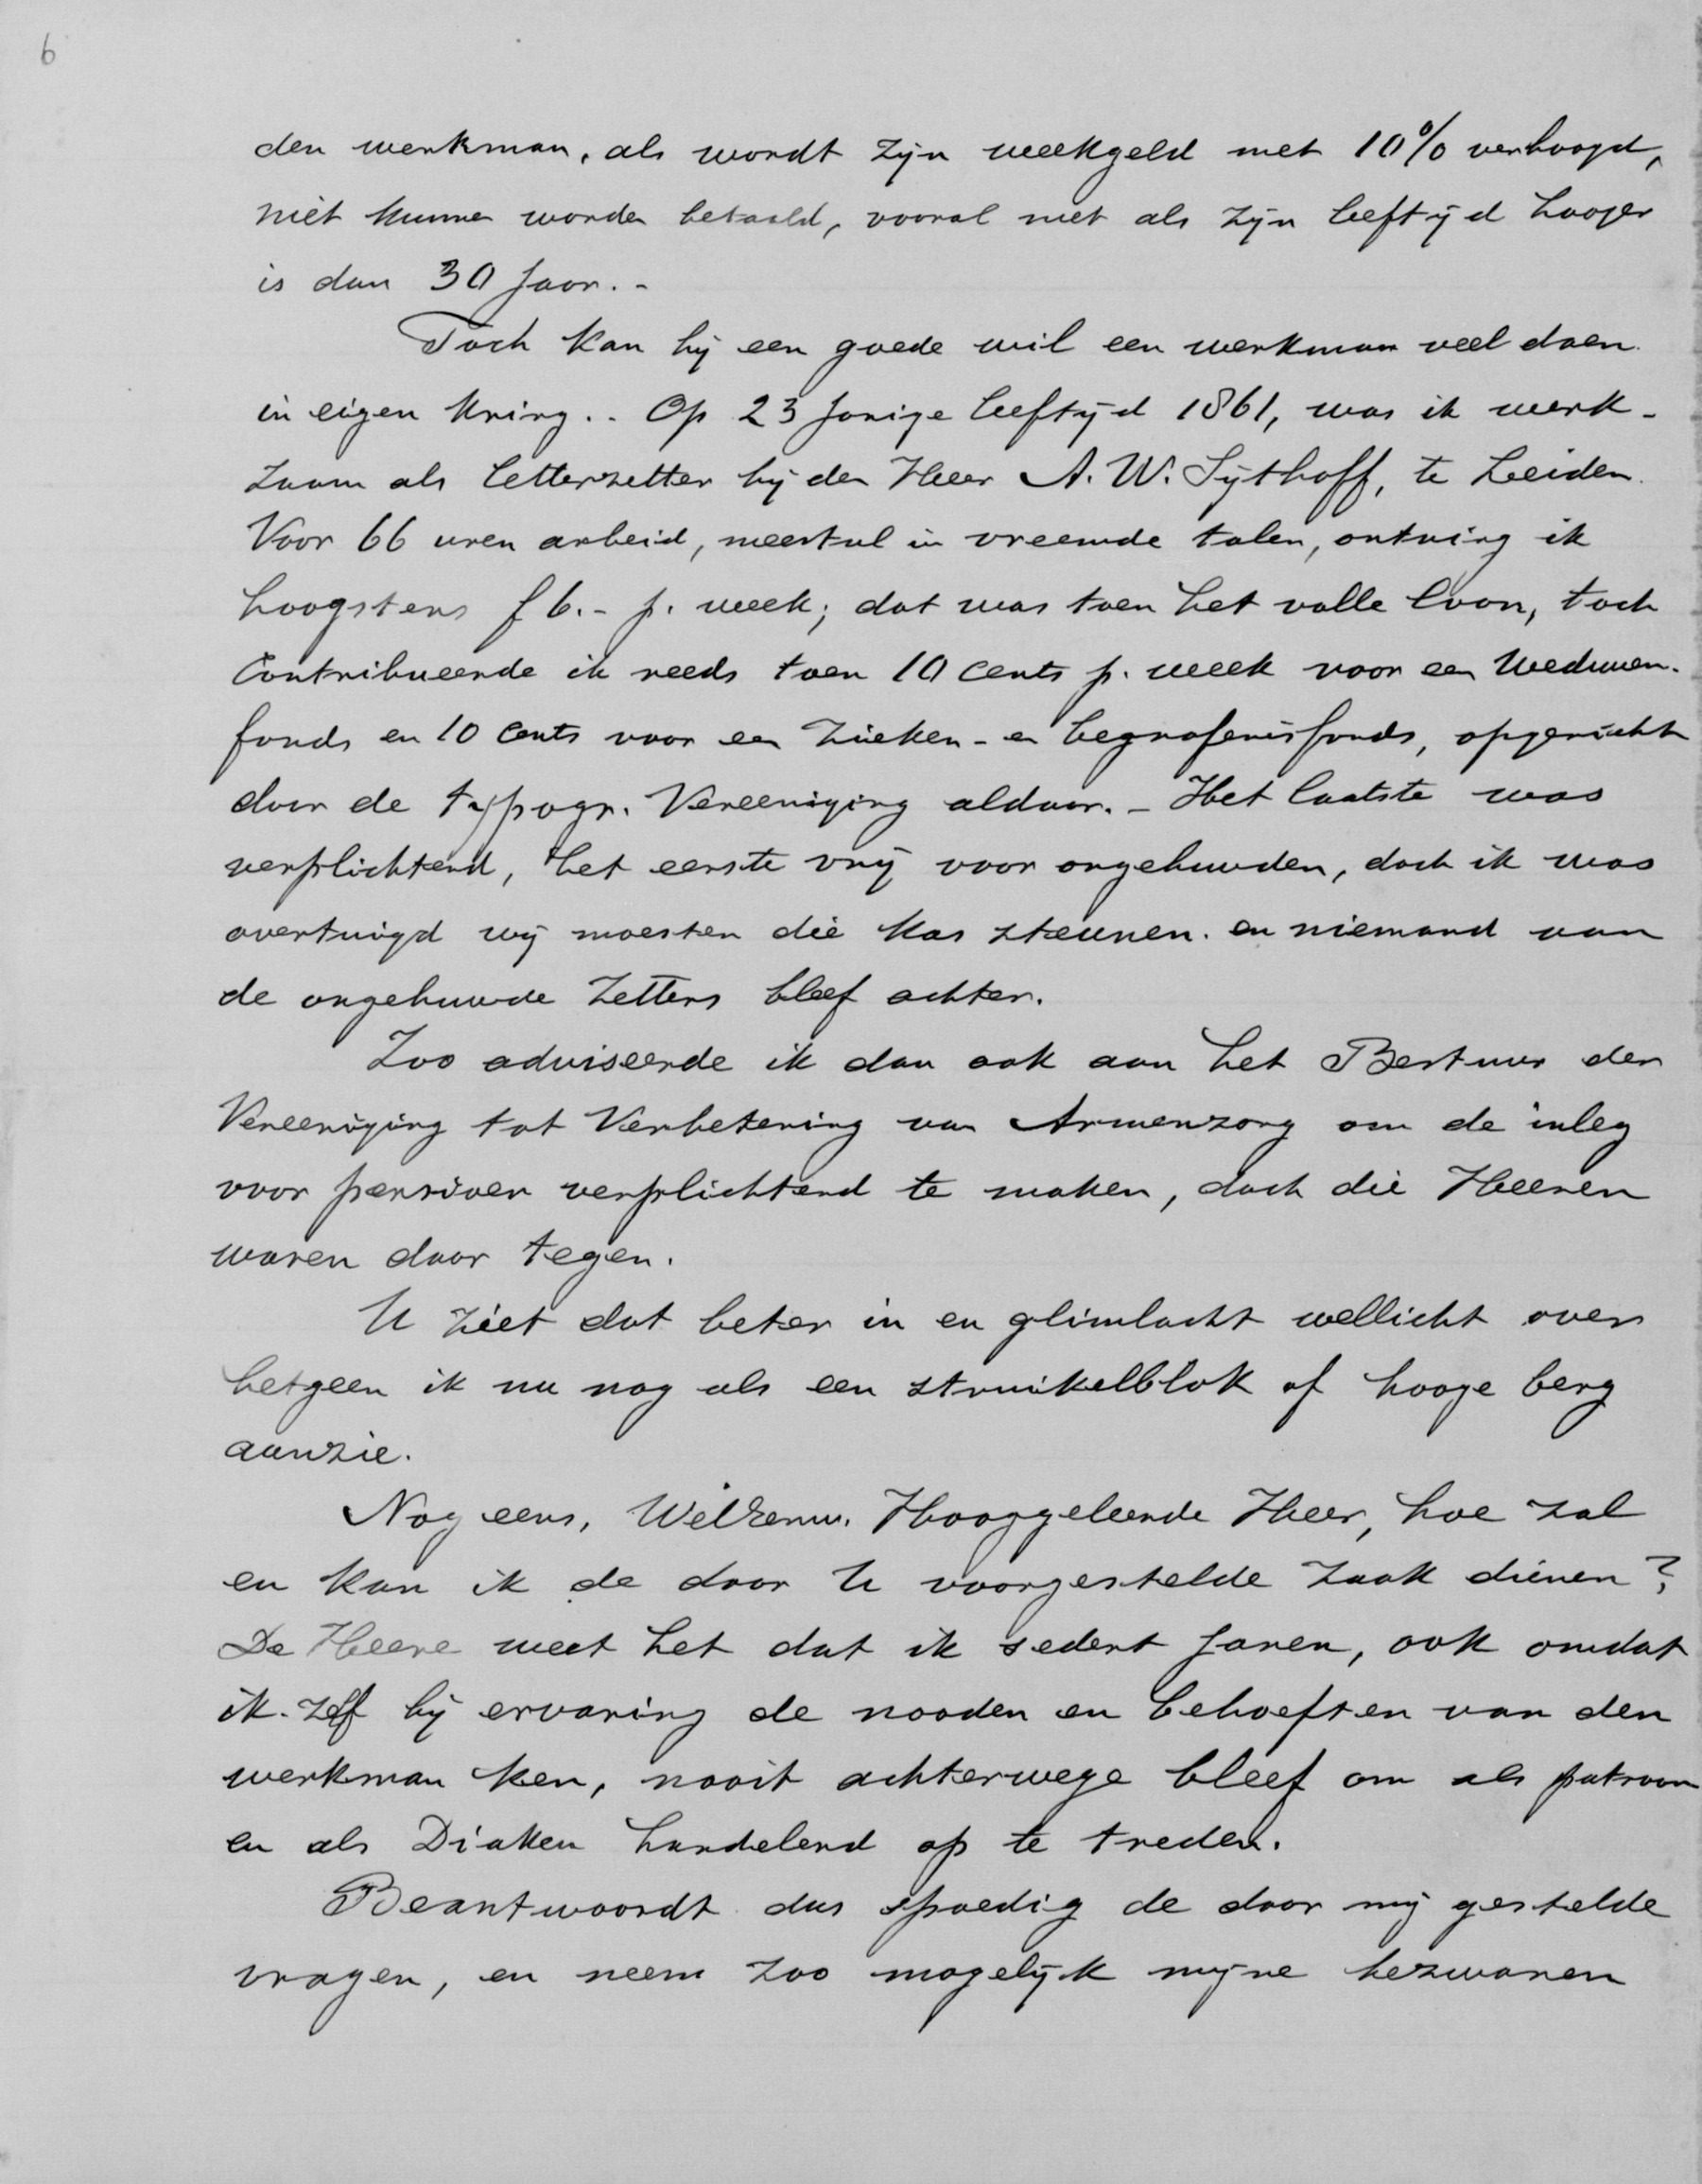 6
den werkman, als wordt zijn weekgeld met 10% verhoogd,
niet kunnen worden betaald, vooral niet als zijn leeftijd hooger
is dan 30 Jaar. -
Toch kan bij een goede wil een werkman veel doen
in eigen kring. - Op 23 Jarige leeftijd 1861, was ik werk-
zaam als letterzetter bij den Heer A. W. Sijthoff, te Leiden.
Voor 66 uren arbeid, meestal in vreemde talen, ontving ik
hoogstens f 6.- p. week; dat was toen het volle loon, toch
Contribueerde ik reeds toen 10 cents p. week voor een Weduwen-
fonds en 10 cents voor een Zieken- en begrafenisfonds, opgericht
door de typogr. Vereeniging aldaar. - Het laatste was
verplichtend, het eerste vrij voor ongehuwden, doch ik was
overtuigd wij moesten die kas steunen en niemand van
de ongehuwde Zetters bleef achter.
Zoo adviseerde ik dan ook aan het Bestuur der
Vereeniging tot Verbetering van Armenzorg om de inleg
voor pensioen verplichtend te maken, doch die Heeren
waren daar tegen.
U ziet dat beter in en glimlacht wellicht over
hetgeen ik nu nog als een struikelblok of hooge berg
aanzie.
Nog eens, WelEerw. Hooggeleerde Heer, hoe zal
en kan ik de door U voorgestelde zaak dienen?
De Heere weet het dat ik sedert Jaren, ook omdat
ik zelf bij ervaring de nooden en behoeften van den
werkman ken, nooit achterwege bleef om als patroon
en als Diaken handelend op te treden.
Beantwoordt dus spoedig de door mij gestelde
vragen, en neem zoo mogelijk mijne bezwaren